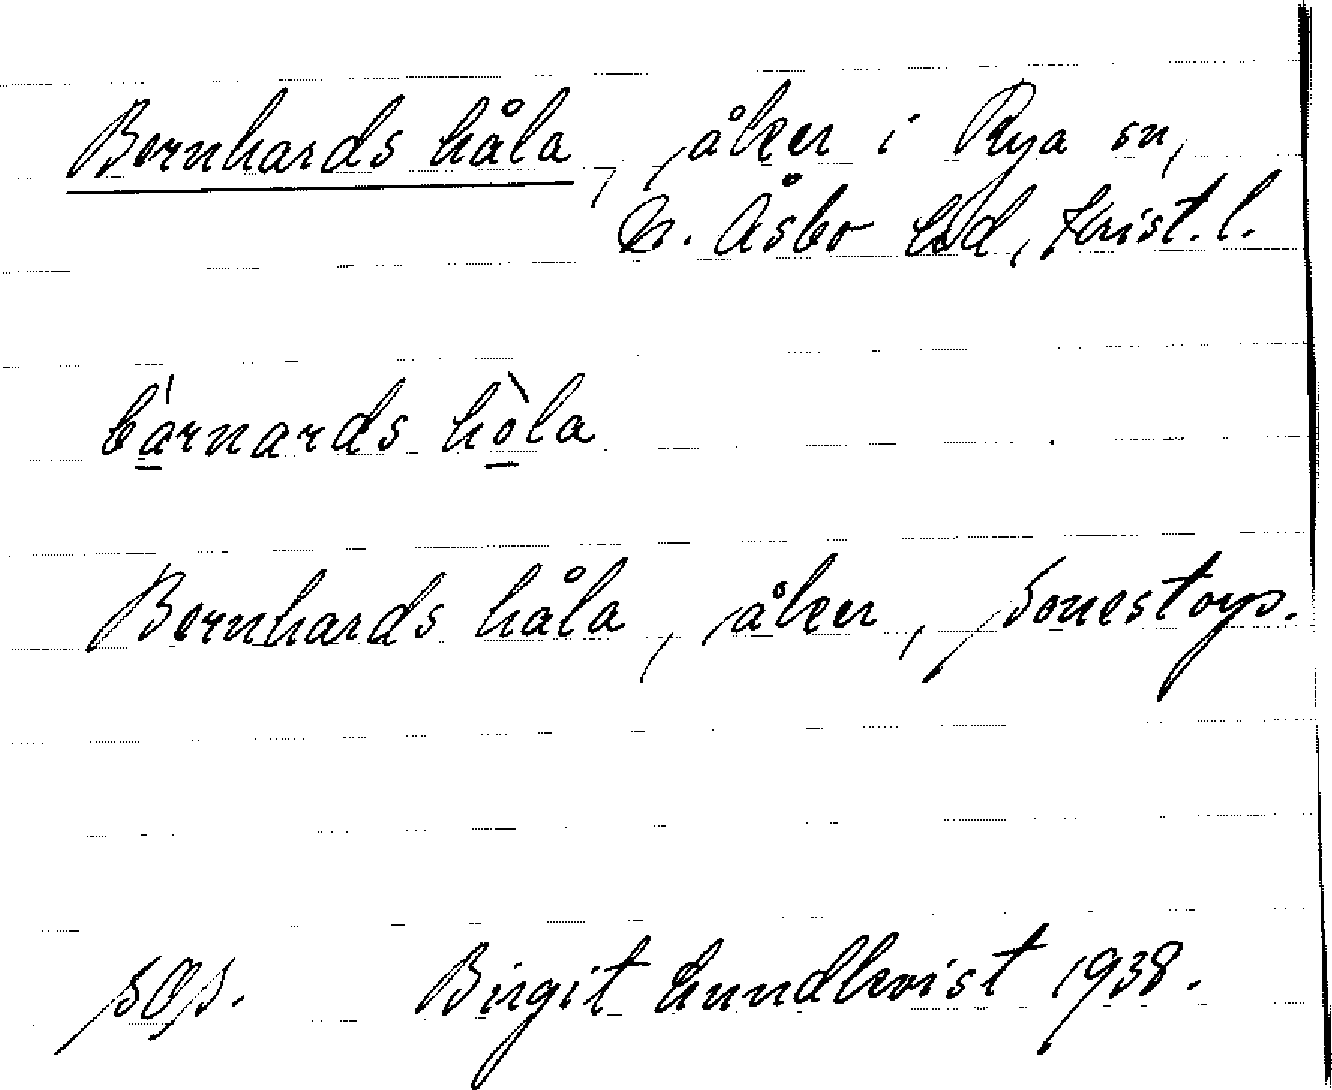 Bernhards håla, åker i Rya sn,
N. Åsbo hd, Krist. l.
bárnards hòla
Bernhards håla, åker, Sonestorp.
SOp. Birgit Lundkvist 1938.